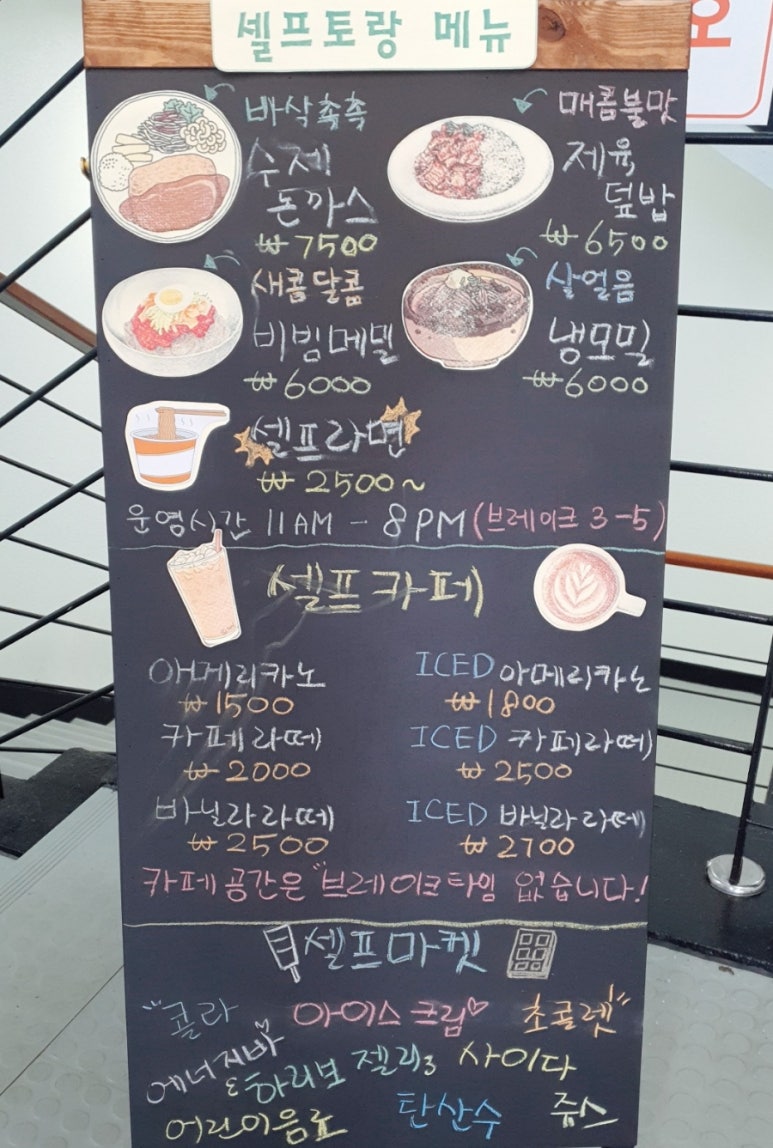 셀프토랑 메뉴
바삭촉촉
수제
돈까스
₩7500
매콤불맛
제육
덮밥
₩6500
새콤달콤
비빔메밀
₩6000
살얼음
냉모밀
₩6000
셀프라면
₩2500~
운영시간 11AM - 8PM (브레이크 3-5)
셀프카페
아메리카노
₩1500
ICED 아메리카노
₩1800
카페라떼
₩2000
ICED 카페라떼
₩2500
바닐라라떼
₩2500
ICED 바닐라라떼
₩2700
카페공간은 "브레이크타임 없습니다!
셀프마켓
콜라 아이스크림 초콜렛
에너지바 & 하리보 젤리 사이다
어린이음료 탄산수 쥬스